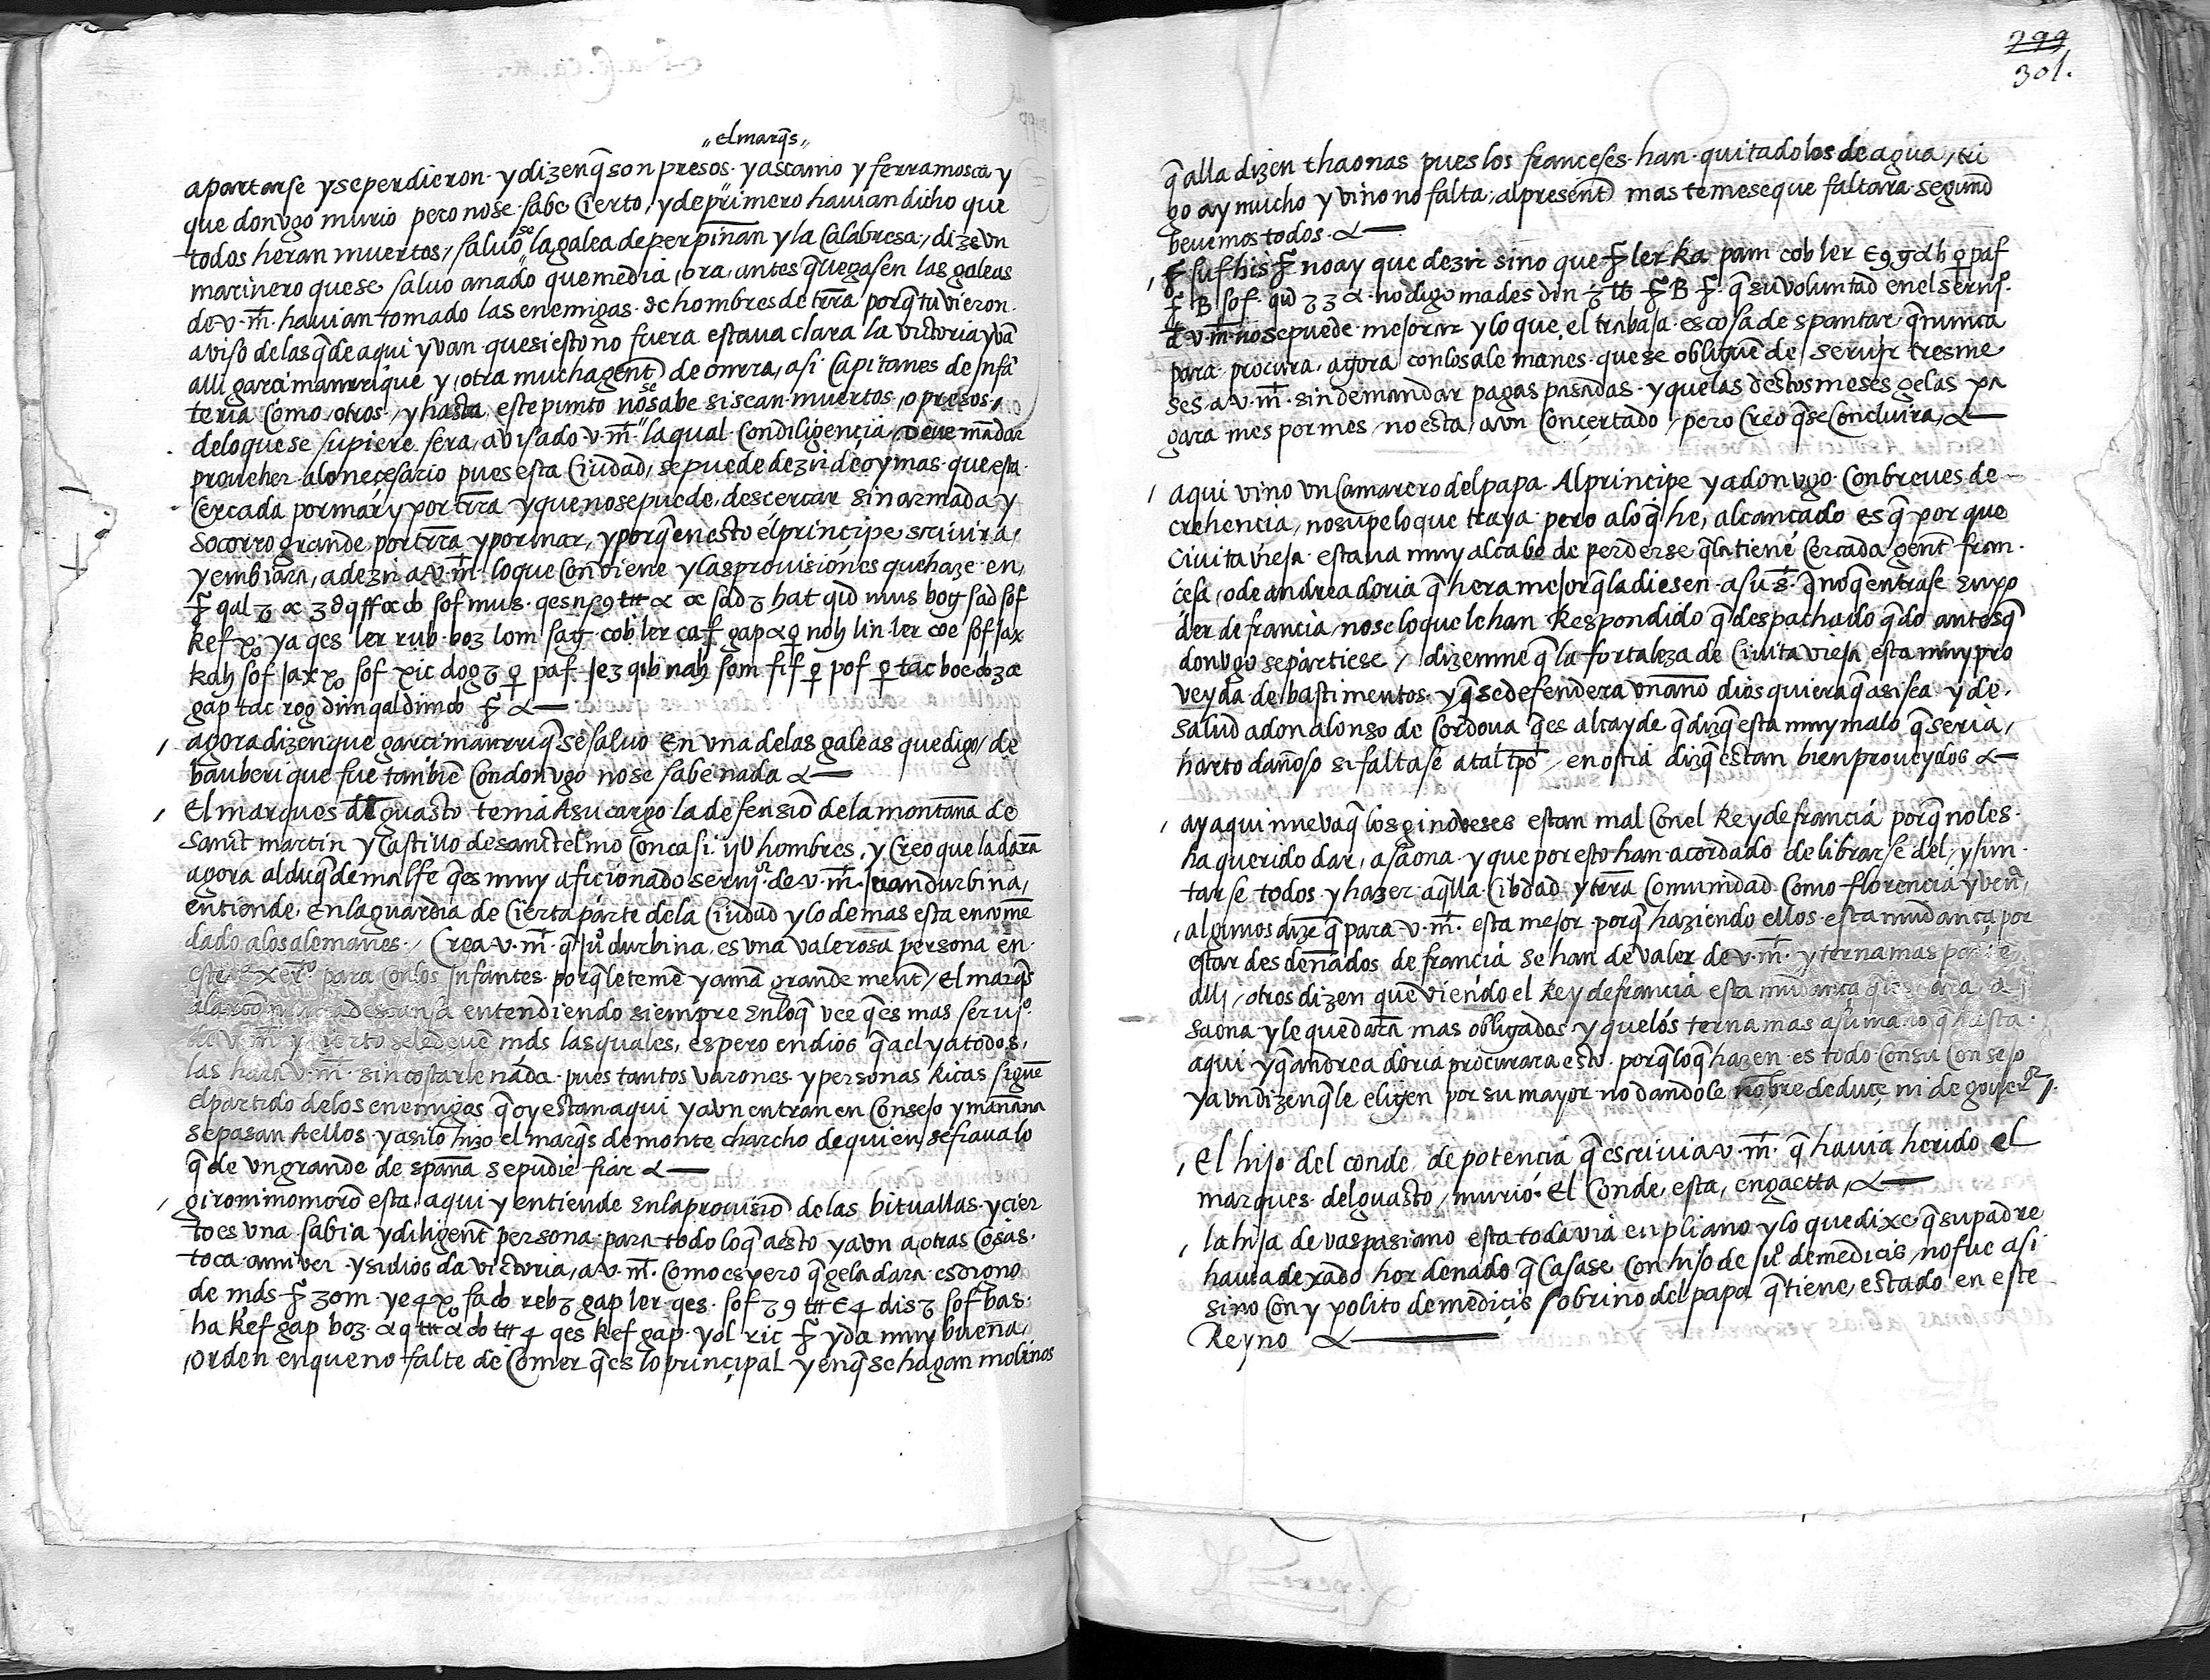 "el marq̃s"
apartarse y se perdieron · y dizen q̃ son presos · y ascanio y ferramosca y
que don ugo murio pero no se sabe cierto, y de primero havian dicho que
todos heran muertos, salvo se la galea de perpiñan y la calabresa, dize un
marinero que se salvo a nado que media, ora, antes q̃ llegasen las galeas
de v · m̃ · havian tomado las enemigas · dc hombres de trr̃a porq̃ tuvieron ·
aviso de las q̃ de aqui yvan · que si esto no fuera estava clara la victoria y va
alli garcimanrrique y, otra mucha gent̃ de onrra, asi capitanes de infã
teria como, otros, y hasta este punto no se sabe si sean muertos, o presos,
de lo que se supiere sera, avisado · v · m̃ · la qual · con diligencia, deve mãdar
proveher a lo neçesario pues esta ciudad, se puede dezir de oy mas que esta ·
cercada por mar y por trr̃a y que no se puede, descercar sin armada y
socorro grande por trr̃a y por mar, y porq̃ en esto el prinçipe screvira,
y embiara, a dezir a v · m̃ · lo que conviene y las provisiones que haze · en,
kef ya qes ler rub · boz lom
gap tac rog dim qal dim
, agora dizen que garcimanrriq̃ se salvo en una de las galeas que digo, de
bauberi que fue tanbiẽ con don ugo no se sabe nada
, El marques del guasto tenia a su cargo la defensiõ de la montaña de
sanct martin y castillo de sanctelmo con casi ijU hombres, y creo que la dara
agora al duq̃ de malfe q̃es muy aficionado servijor de · v · m̃ · juan durbina,
entiende · en la guardia de cierta parte de la ciudad y lo demas esta encome
dado a los alemanes · / Crea v · m̃ · q̃ juº durbina, es una valerosa persona en ·
este exerº para con los infantes · porq̃ le temẽ y amã grande ment̃, el marq̃s
alarcon nunca descansa entendiendo siempre en loq̃ vee q̃es mas servijº ·
de v · m̃ y cierto se le deve mds las quales, espero en dios q̃ a el y a todos,
las hara v · m̃ · sin costarle nada · pues tantos varones · y personas ricas siguẽ
el partido de los enemigos q̃ oy estan aqui y aun entran en consejo y mañana
se pasan a ellos · y asi lo hizo el marq̃s de monte charcho de quien, se fiava lo
q̃ de un grande de spaña se pudie fiar
, gironimo morõ esta, aqui y entiende en la provisiõ de las bituallas · y cier
to es una sabia y diligent̃ persona · para todo loq̃ a esto y a un a otras cosas ·
toca a mi ver · y si dios da victoria, a v · m̃ · como espero q̃ gela dara es digno
ha kef gap boz · qes kef gap · yol ric y da muy buena,
, orden en que no falte de comer q̃es lo prinçipal y en q̃ se hagan molinos
299
301 ·
q̃ alla dizen thaonas pues los franceses · han · quitado los de agua, tri
go ay mucho y vino no falta, al present̃ mas temese que faltara · segund
bevemos todos ·
, no ay que dezir sino que ler ka pam cob ler
no digo mades din q̃ su voluntad en el servijº ·
d v · m̃ no se puede · mejorar y lo que el trabaja · es cosa de spantar q̃ nunca
para · procura · agora con los alemanes · que se obliguẽ de servir tres me
ses · a v · m̃ · sin demandar pagas pasadas · y que las destos meses gelas pa
gara mes por mes, no esta, aun concertado, pero creo q̃ se concluira,
, aqui vino un camarero del papa · Al prinçipe y a don ugo · con breves de
crehencia, no supe lo que traya · pero a loq̃ he, alcançado es q̃ por que
civita vieja · estava muy al cabo de perderse q̃ la tiene cercada gent̃ fran ·
çesa, o de andrea doria q̃ hera mejor q̃ la diesen · a su s̃ · q̃ no q̃ entrase en po
der de francia, no se lo que le han respondido q̃ despachado q̃do antes q̃
don ugo se partiese, dizenme q̃ la fortaleza de civita vieja esta muy pro
veyda de bastimentos · y q̃ se defendera un año dios quiera q̃ asi sea · y de ·
salud a don alonso de cordova q̃es alcayde q̃ dizq̃ esta muy malo q̃ seria,
harto dañoso si faltase a tal tp̃o, en ostia dizq̃ estan bien proveydos
, ay aqui nueva q̃ los ginoveses estan mal con el Rey de francia porq̃ no les ·
ha querido dar, a saona · y que por esto han acordado de librarse del, y jun ·
tarse todos y hazer aq̃lla cibdad y trr̃a comunidad como florencia y ven̄,
, algunos dizẽ q̃ para v · m̃ · esta mejor · porq̃ haziendo ellos · esta mudança por
estar desdeñados de francia se han de valer de v · m̃ · y terna mas parte,
alli, otros dizen que viendo el Rey de francia esta mudança q̃ les dara, a
saona · y le quedarã mas obligados · y que los terna mas a su mano q̃ hasta ·
aqui y q̃ andrea doria procurara esto · porq̃ loq̃ hazen · es todo con su consejo
y aun dizen q̃ le eligen por su mayor · no dandole nõbre de duçe ni de goverºr ·
, El hijo del conde de potencia q̃ escrivi a v · m̃ · q̃ havia herido el
marques · del guasto, murio · el conde, esta, en gaetta,
, la hija de vaspasiano esta todavia en pliano y lo que dixe q̃ su padre
havia dexado hordenado q̃ casase con hijo de juº de medicis, no fue asi
sino con ypolito de mediçis sobrino del papa q̃ tiene, estado en este
Reyno